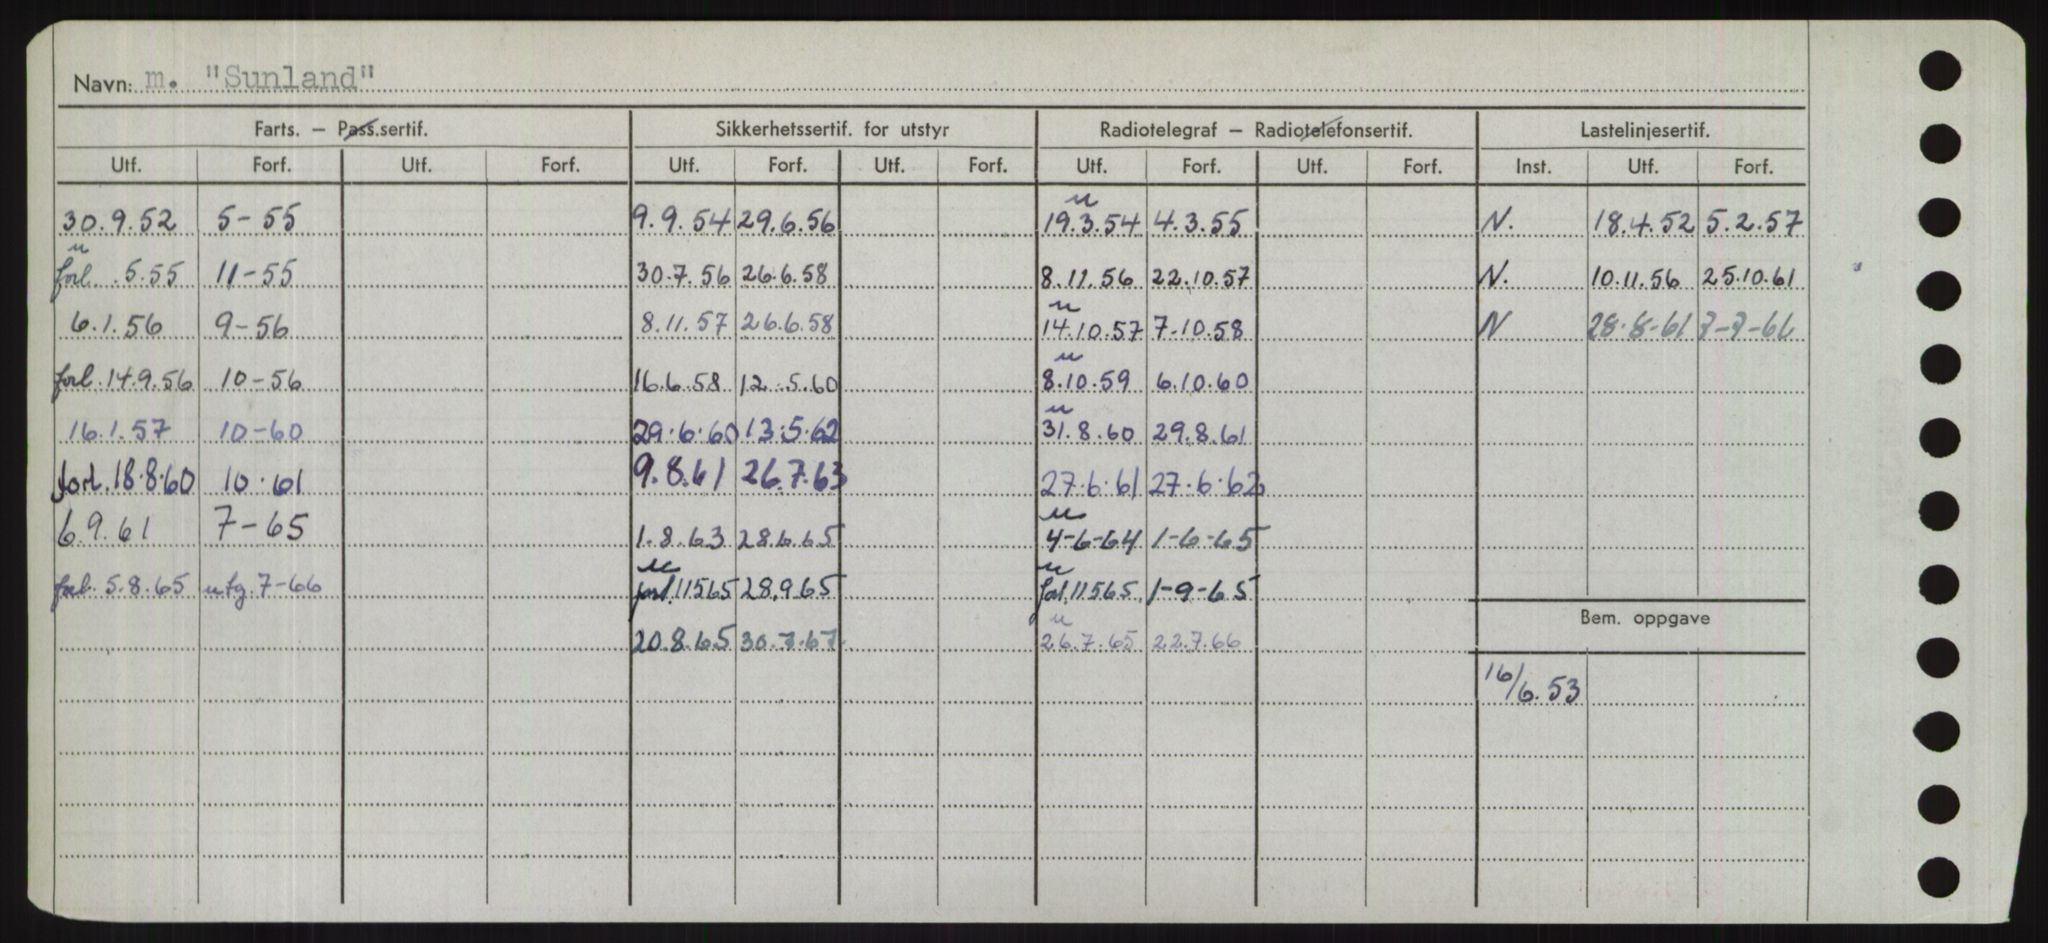 Navn: m. "Sunland"
Farts. – Pass.sertif. Sikkerhetssertif. for utstyr Radiotelegraf – Radiotelefonsertif. Lastelinjesertif.
Utf. Forf. Utf. Forf. Utf. Forf. Utf. Forf. Utf. Forf. Utf. Forf. Inst. Utf. Forf.
u
30.9.52 5-55 9.9.54 29.6.56 19.3.54 4.3.55 N. 18.4.52 5.2.57
u
forl. .5.55 11-55 30.7.56 26.6.58 8.11.56 22.10.57 N. 10.11.56 25.10.61
u
6.1.56 9-56 8.11.57 26.6.58 14.10.57 7-10.58 N 28-8-61 7-7-66
u
forl.14.9.56 10-56 16.6.58 12.5.60 8.10.59 6.10.60
u
16.1.57 10-60 29.6.60 13.5.62 31.8.60 29.8.61
forl.18.8.60 10.61 9.8.61 26.7.63 27.6.61 27.6.62
u
6.9.61 7-65 1.8.63 28.6.65 4-6-64 1-6-65
u u
forl. 5.8.65 utg. 7-66 forl.11565 28.9.65 forl.11565 1-9-65
Bem. oppgave
u
20.8.65 30.7.67 26.7.65 22.7.66
16/6.53